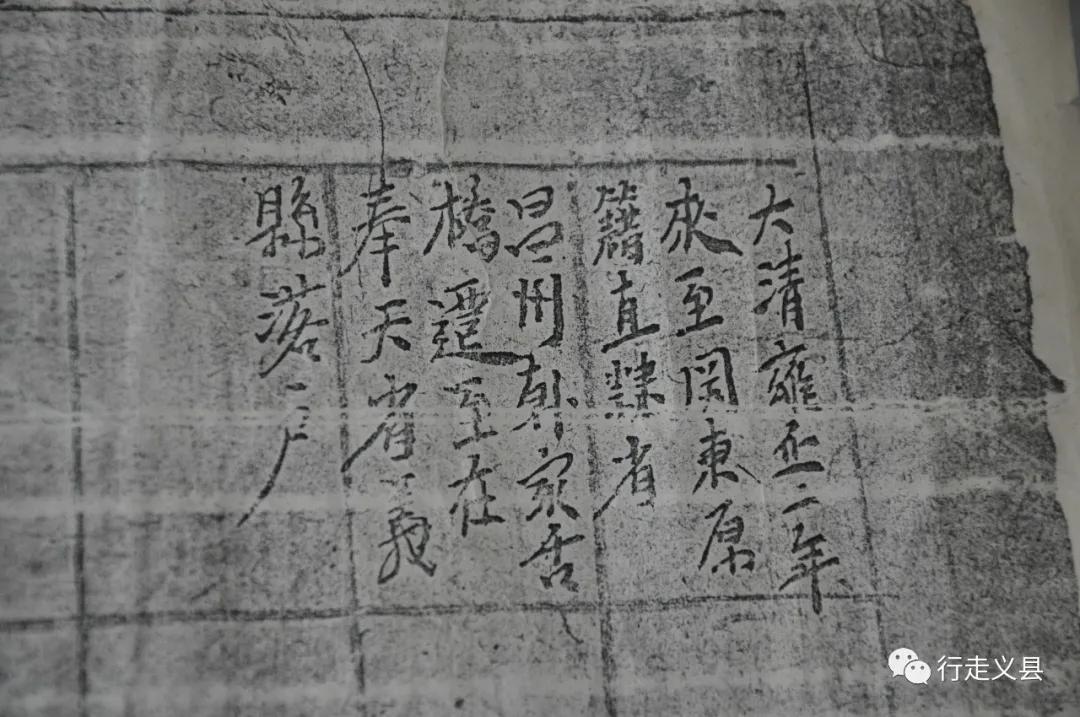 大清雍正二年
來至関東原
籍直隸省
昌州家舌
橋遷至在
奉天省義
縣落戶
行走义县